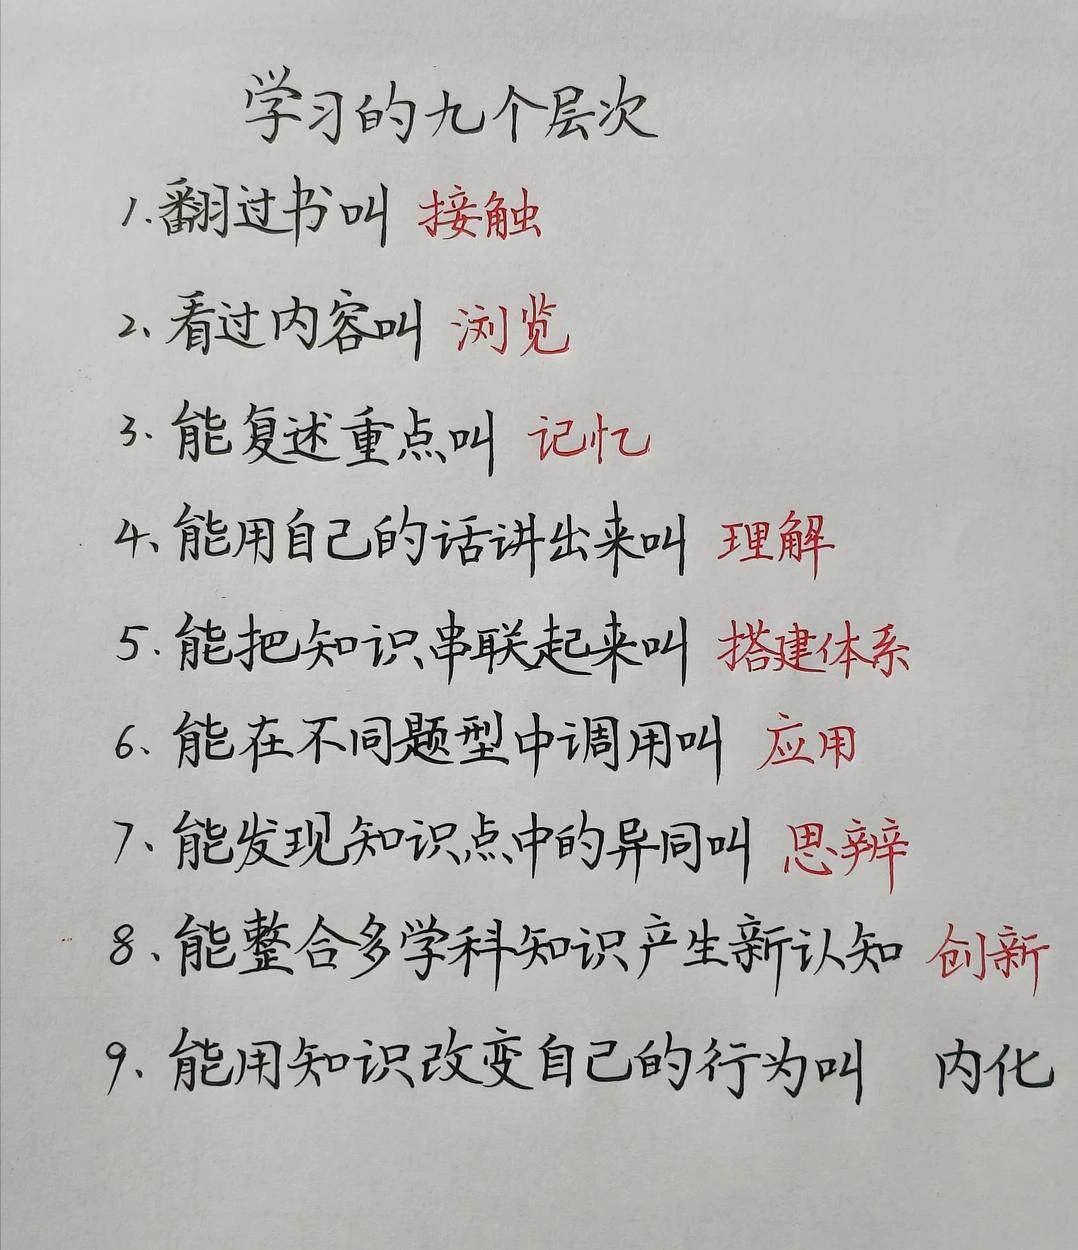 学习的九个层次
1.翻过书叫 接触
2、看过内容叫 浏览
3.能复述重点叫 记忆
4、能用自己的话讲出来叫 理解
5.能把知识串联起来叫 搭建体系
6、能在不同题型中调用叫 应用
7、能发现知识点中的异同叫 思辨
8、能整合多学科知识产生新认知 创新
9、能用知识改变自己的行为叫 内化